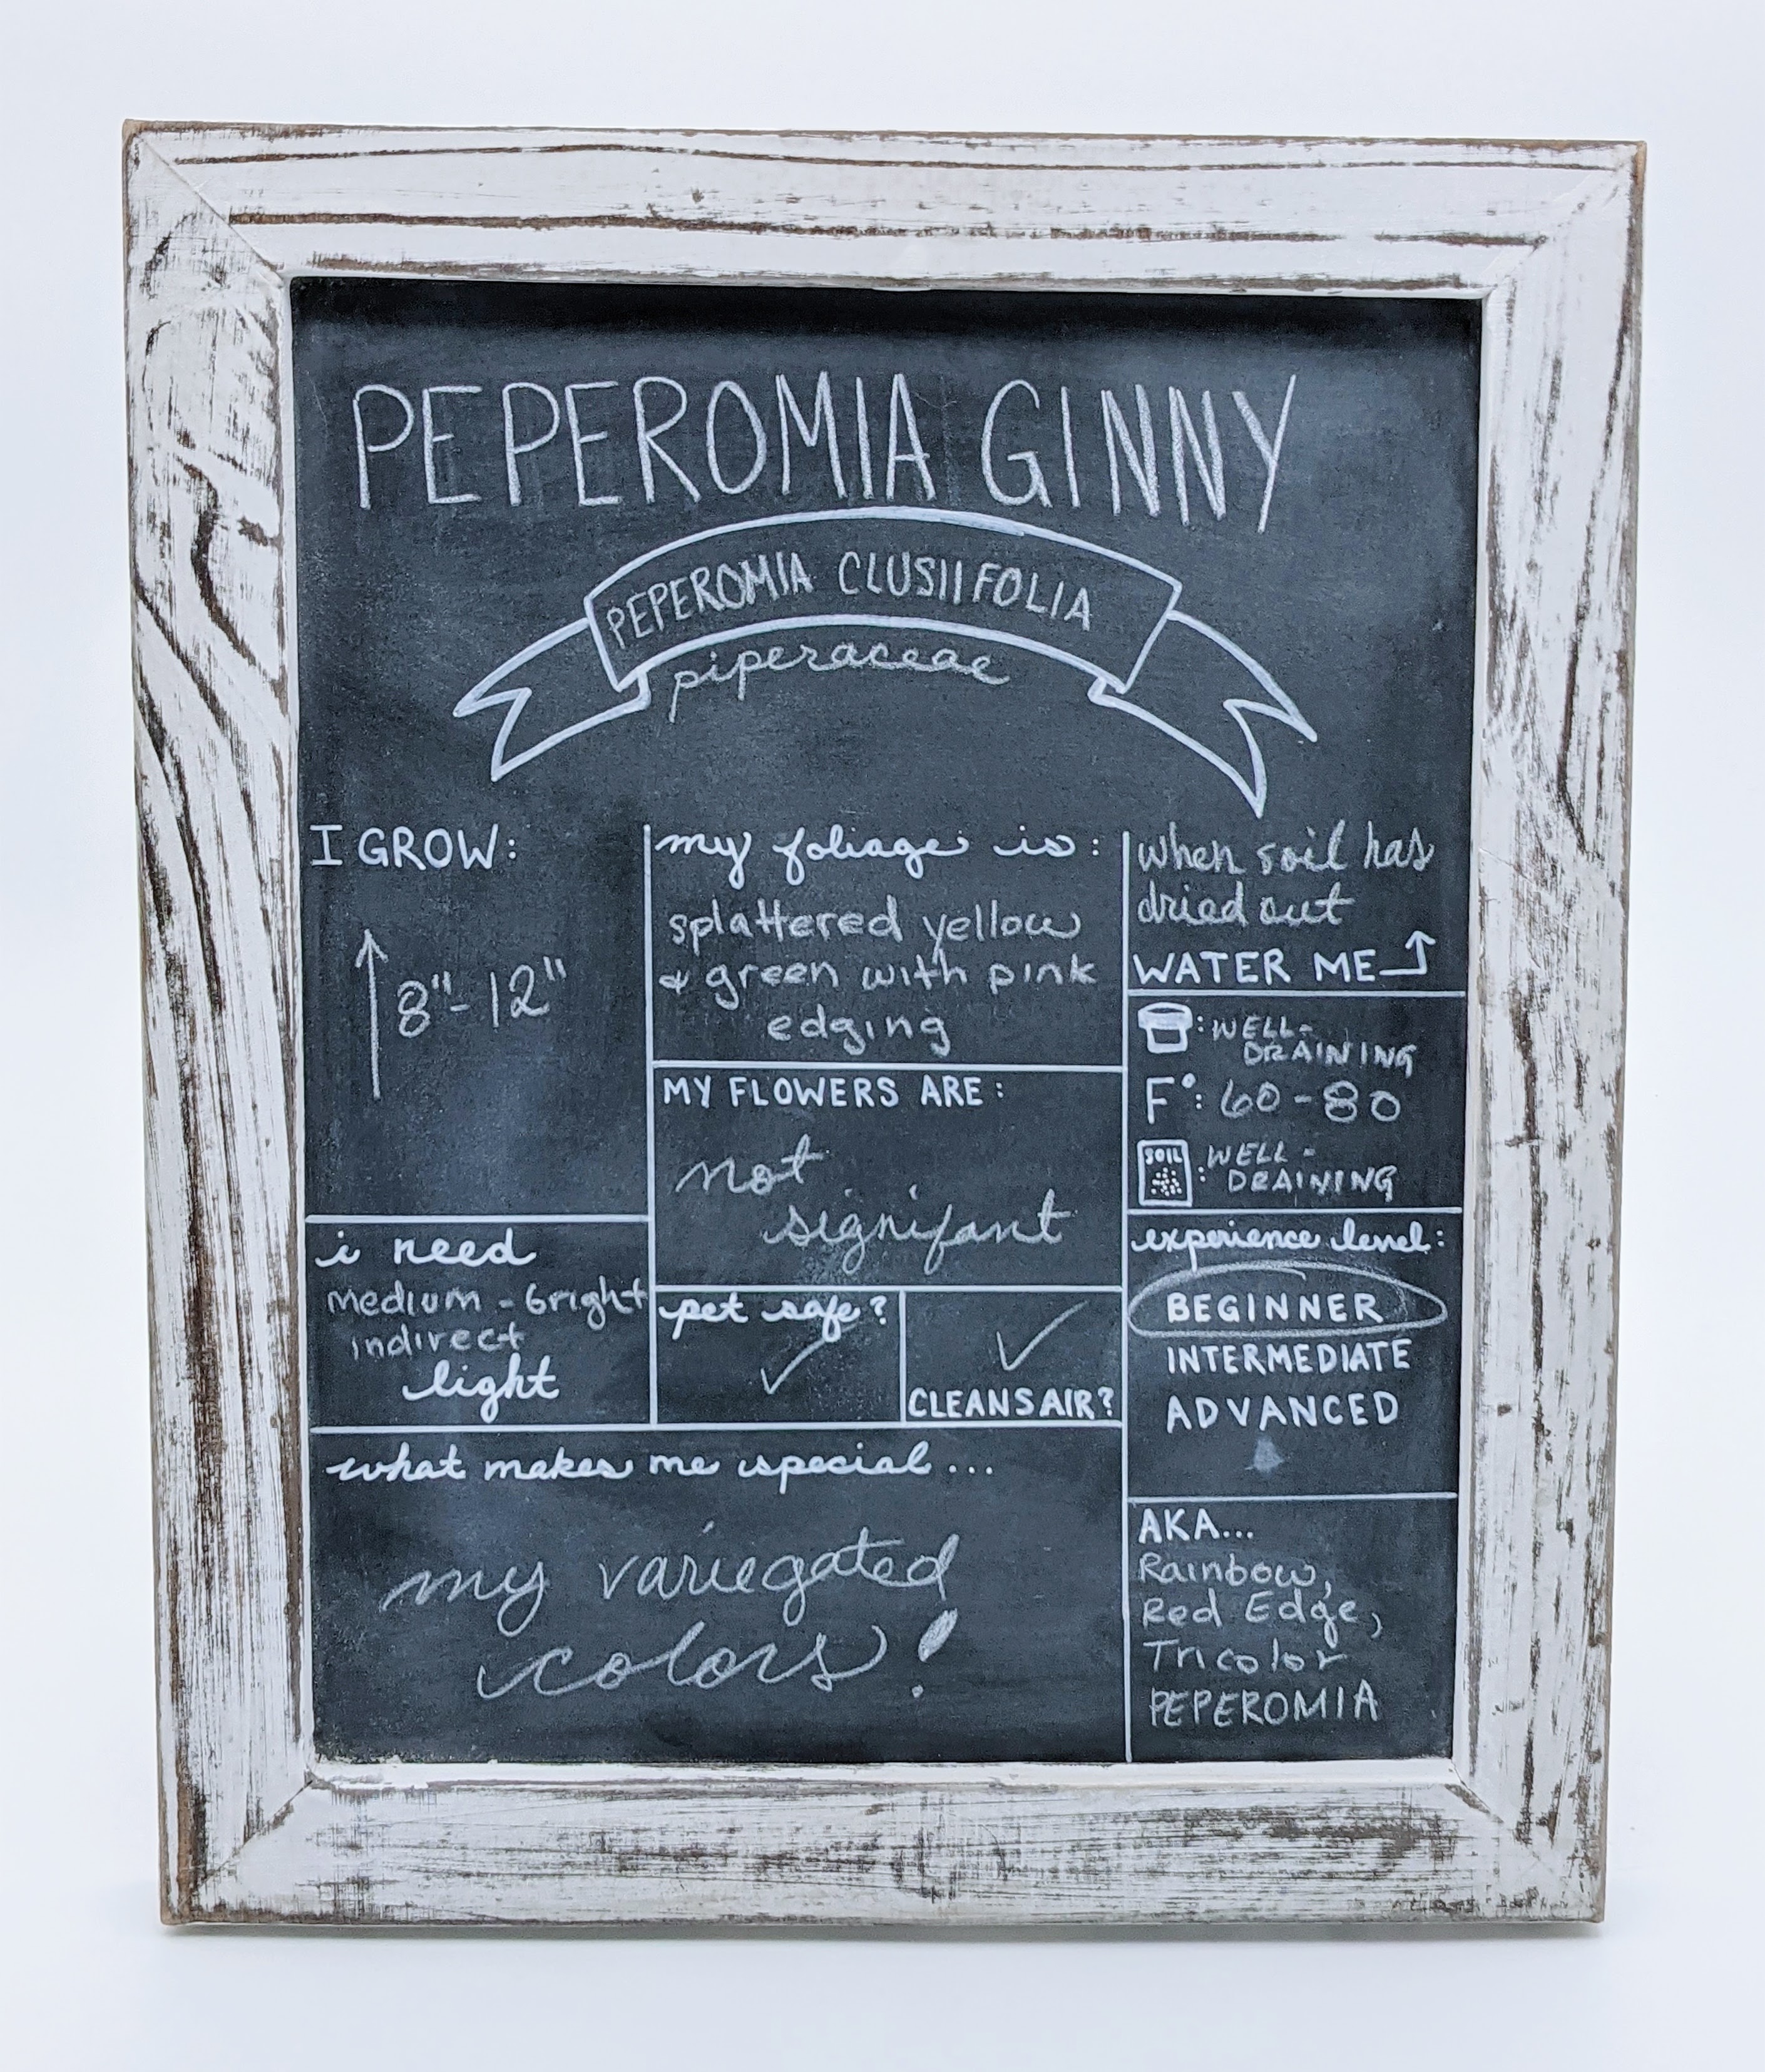 PEPEROMIA GINNY
PEPEROMIA CLUSIIFOLIA
piperaceae
I GROW:
8"-12"
i need
medium-bright
indirect
light
my foliage is:
splattered yellow
& green with pink
edging
MY FLOWERS ARE:
not
signifant
pet safe?
✓
✓
CLEANS AIR?
what makes me special...
my variegated
colors!
when soil has
dried out
WATER ME
: WELL-
DRAINING
F°: 60-80
SOIL : WELL-
DRAINING
experience level:
BEGINNER
INTERMEDIATE
ADVANCED
AKA...
Rainbow,
Red Edge,
Tricolor
PEPEROMIA